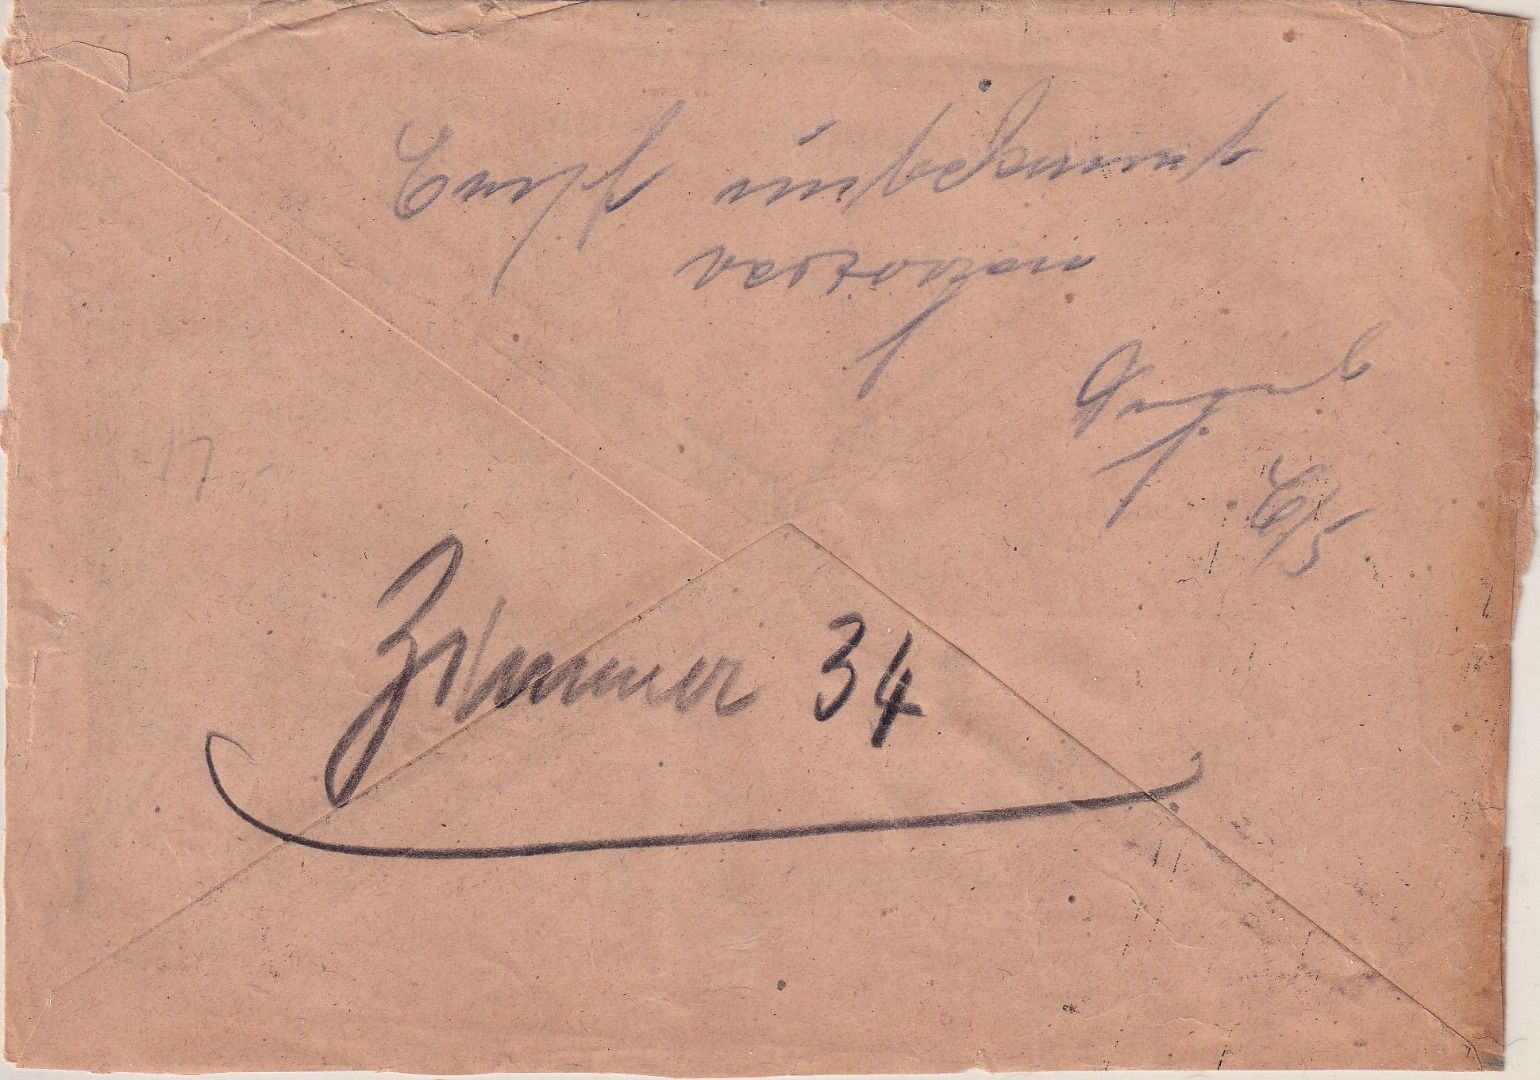 Empf unbekannt
verzogen
6/5
Zimmer 34